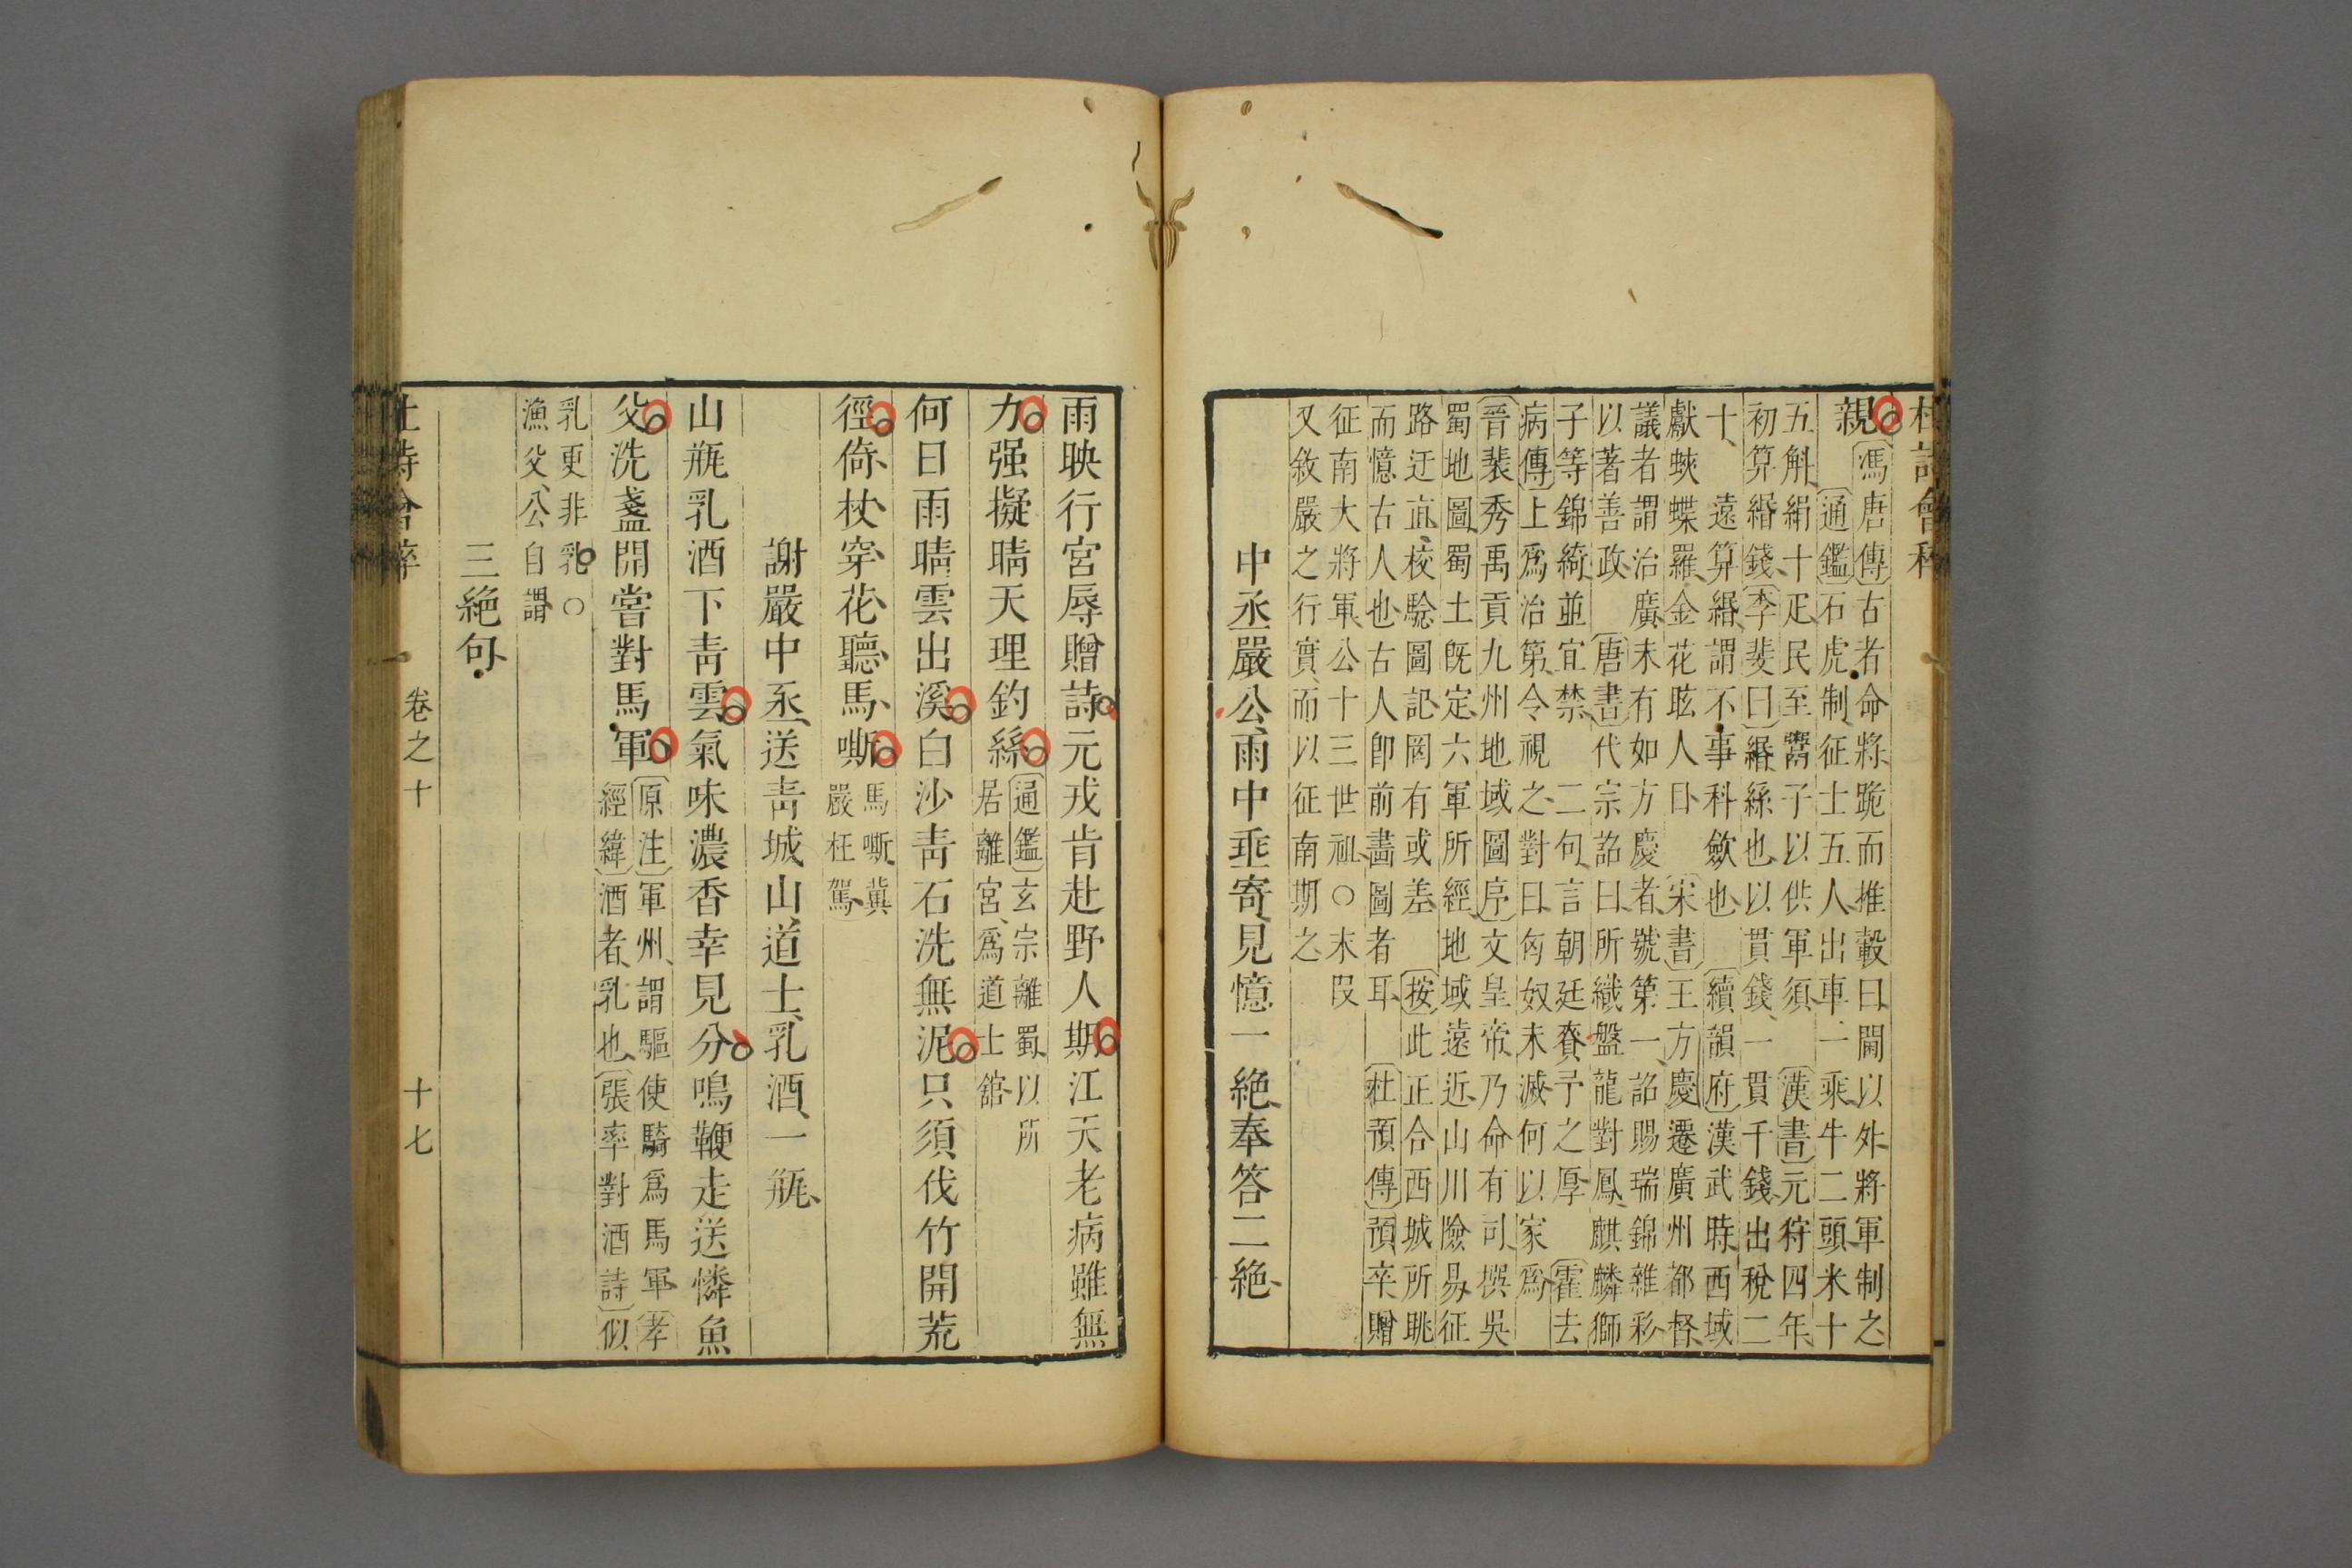 杜詩會稡
親
〔馮唐傳〕古者命將跪而推轂曰閫以外將軍制之
〔通鑑〕石虎制征士五人出車一乘牛二頭米十
五斛絹十疋民至鬻子以供軍須〔漢書〕元狩四年
初算緡錢〔李斐曰〕緡絲也以貫錢一貫千錢出稅二
十遠算緡謂不事科斂也〔續韻府〕漢武時西域
獻蛺蝶羅金花眩人目〔宋書〕王方慶遷廣州都督
議者謂治廣未有如方慶者號第一詔賜瑞錦雜彩
以著善政〔唐書〕代宗詔曰所織盤龍對鳳麒麟獅
子等錦綺並宜禁二句言朝廷賚予之厚〔霍去
病傳〕上爲治第令視之對曰匈奴未滅何以家爲
〔晉裴秀禹貢九州地域圖序〕文皇帝乃命有司撰吳
蜀地圖蜀土既定六軍所經地域遠近山川險易征
路迂直校驗圖記罔有或差〔按〕此正合西城所眺
而憶古人也古人卽前畫圖者耳〔杜預傳〕預卒贈
征南大將軍公十三世祖〇末叚
又敘嚴之行實而以征南期之
中丞嚴公雨中垂寄見憶一絶奉答二絶
雨映行宮辱贈詩元戎肯赴野人期江天老病雖無
力强擬晴天理釣絲
〔通鑑〕玄宗離蜀以所
居離宮爲道士舘
何日雨晴雲出溪白沙靑石洗無泥只須伐竹開荒
徑倚杖穿花聽馬嘶
馬嘶冀
嚴枉駕
謝嚴中丞送靑城山道士乳酒一瓶
山瓶乳酒下靑雲氣味濃香幸見分鳴鞭走送憐魚
父洗盞開嘗對馬軍
〔原注〕軍州謂驅使騎爲馬軍〔孝
經緯〕酒者乳也〔張率對酒詩〕似
乳更非乳〇
漁父公自謂
三絶句
杜詩會稡
卷之十
十七